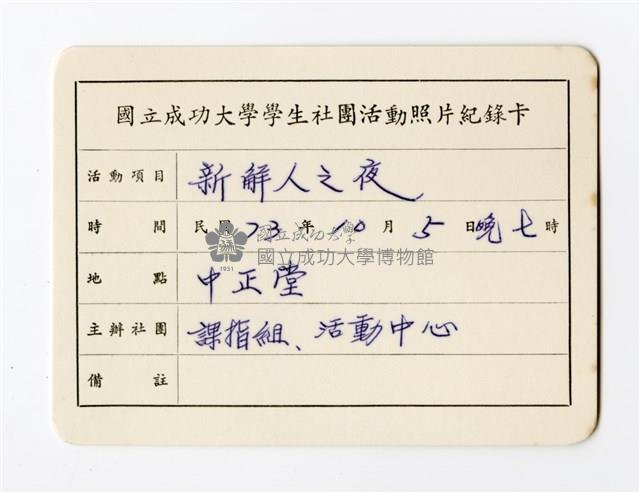 國立成功大學學生社團活動照片紀錄卡
活動項目 新鮮人之夜
時間 民國73年10月5日晚七時
國立成功大學
國立成功大學博物館
1931
地點 中正堂
主辦社團 課指組、活動中心
備註